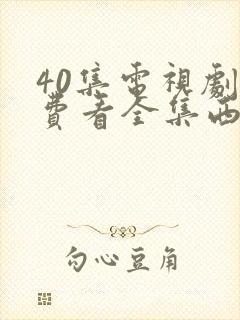 40集電視劇
費看全集西
勾心豆角